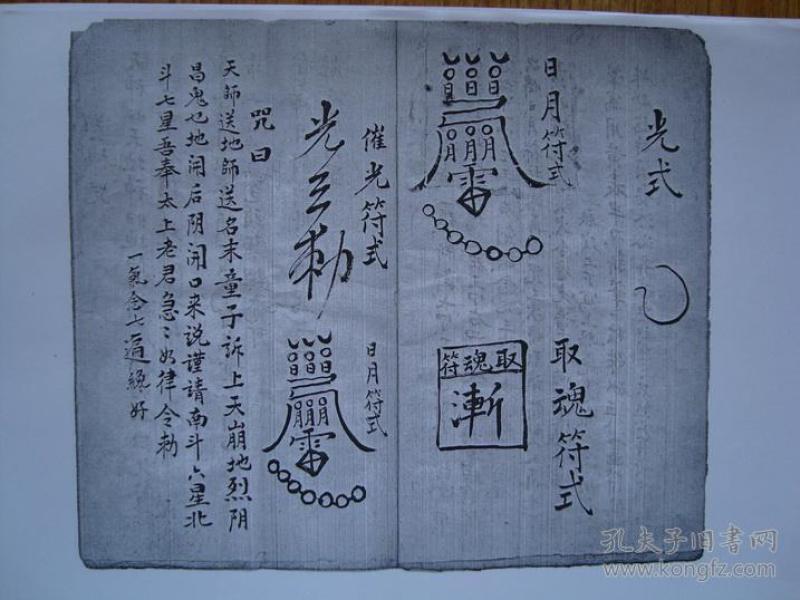 光式
日月符式
取魂符式
取魂符
漸
催光符式
日月符式
咒曰
天師送地師送名末童子訴上天崩地烈阴
昌鬼也地開后阴開口来说謹請南斗六星北
斗七星吾奉太上老君急〻如律令勅
一氣念七遍纔好
孔夫子旧书网
www.kongfz.com